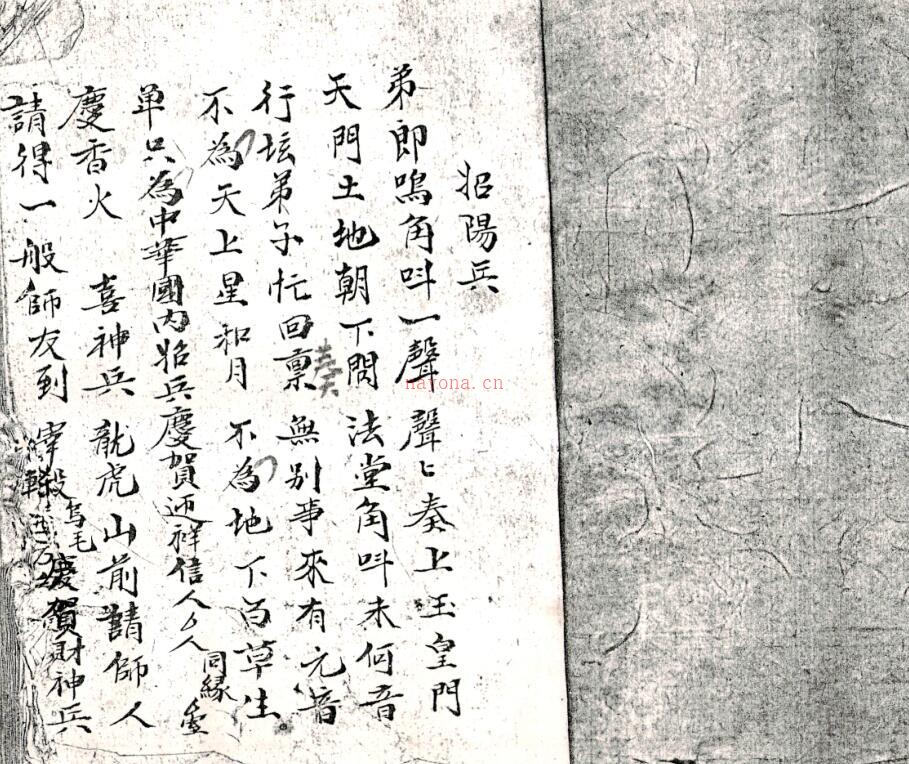 招陽兵
弟郎嗚角叫一聲 聲〻奏上玉皇門
天門土地朝下問 法堂角叫未何音
行坛弟子忙回禀奏 無別事來有元音
不為天上星和月 不為地下百草生
单只為中華國内招兵慶賀迎祥信人△人同緣
慶香火 喜神兵 龍虎山前請師人
請得一般師友到 宰殺烏毛慶賀財神兵
nayona.cn